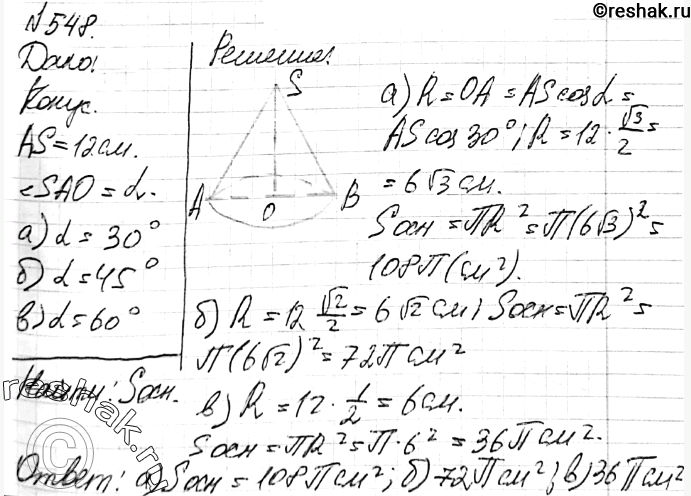 ©reshak.ru
№548.
Дано:
Конус.
AS=12см.
∠SAO=α.
а) α=30°
б) α=45°
в) α=60°
Найти: Sосн.
Решение:
S
A
O
B
а) R=OA=AScosα=
AScos30°; R=12·√3/2=
=6√3см.
Sосн=πR²=π(6√3)²=
108π(см²).
б) R=12 √2/2=6√2см; Sосн=πR²=
π(6√2)²=72πсм²
в) R=12·1/2=6см.
Sосн=πR²=π·6²=36πсм².
Ответ: а) Sосн=108πсм²; б) 72πсм²; в) 36πсм²
reshak.ru
©